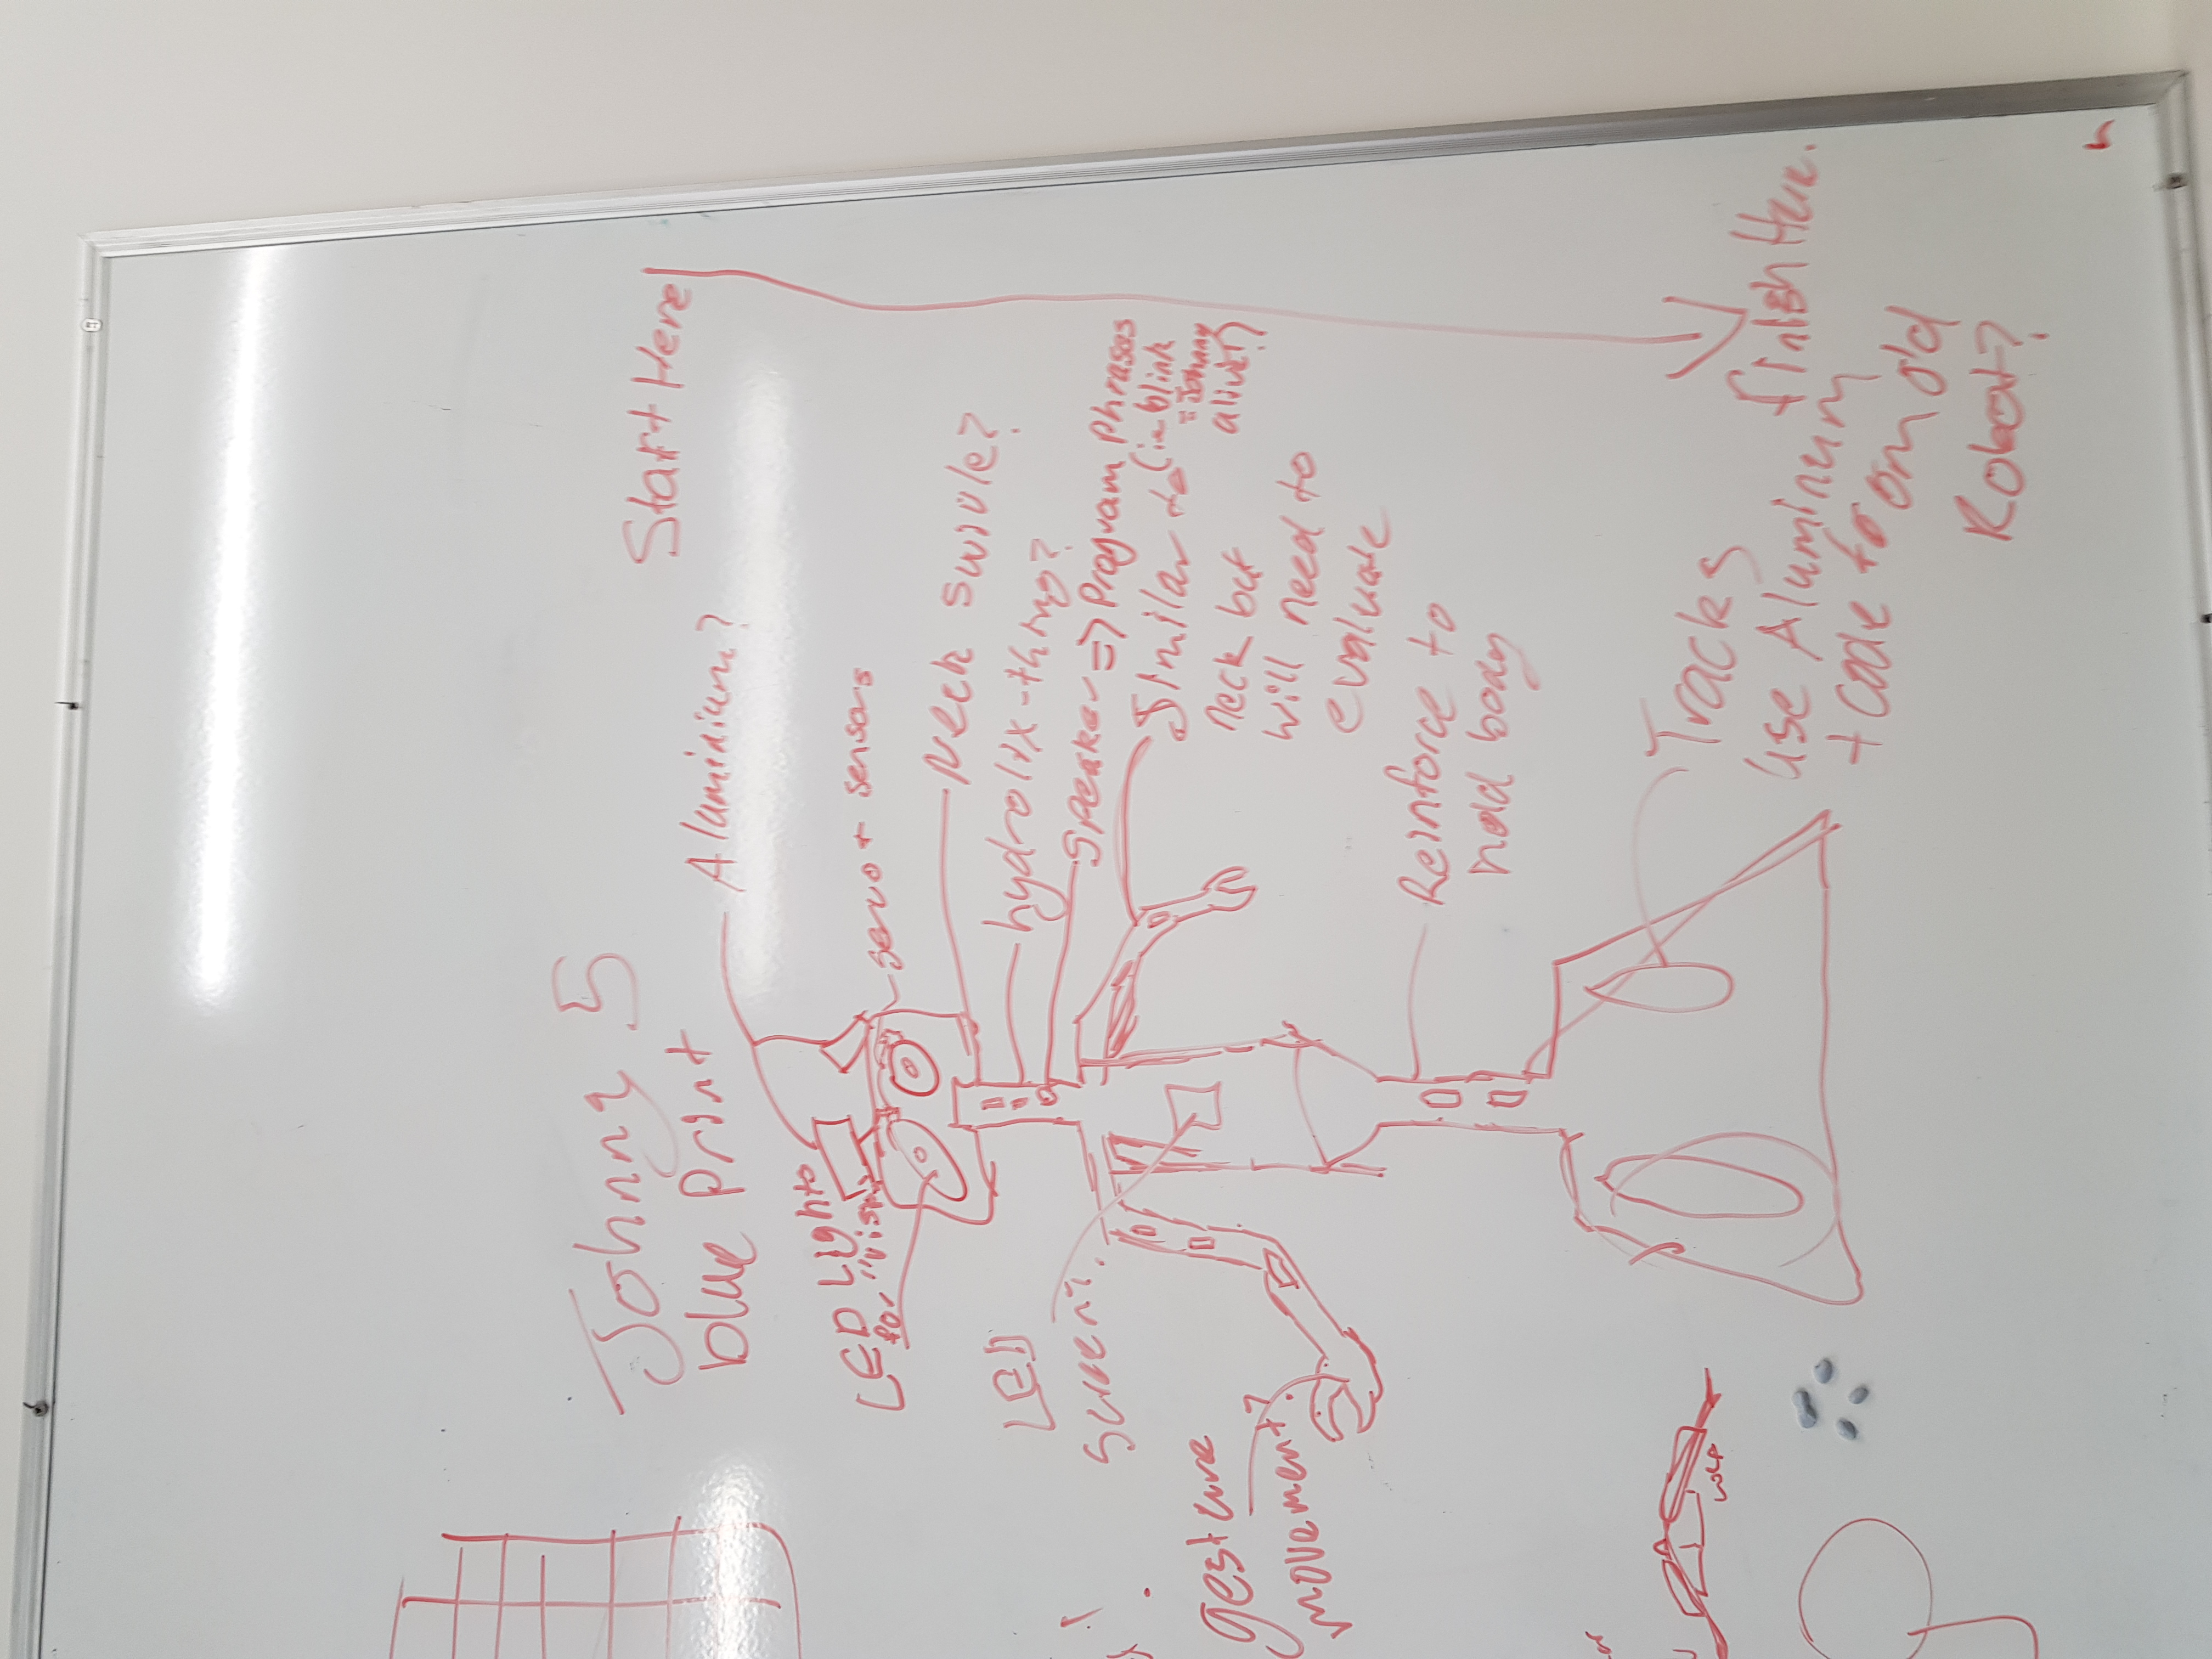 Johnny 5
blue Print
Start Here
Aluminium?
LED Lights
for "vis
servo + sensors
Neck swivle?
hydrolix-thing?
Speaker => Program Phrases
(ie blink
= Johnny
alive!)
LED
Screen?
Similar to
neck but
will need to
evaluate
gesture
movement?
Reinforce to
hold body
Tracks
use Aluminum
+ code from old
Robot?
finish Here.